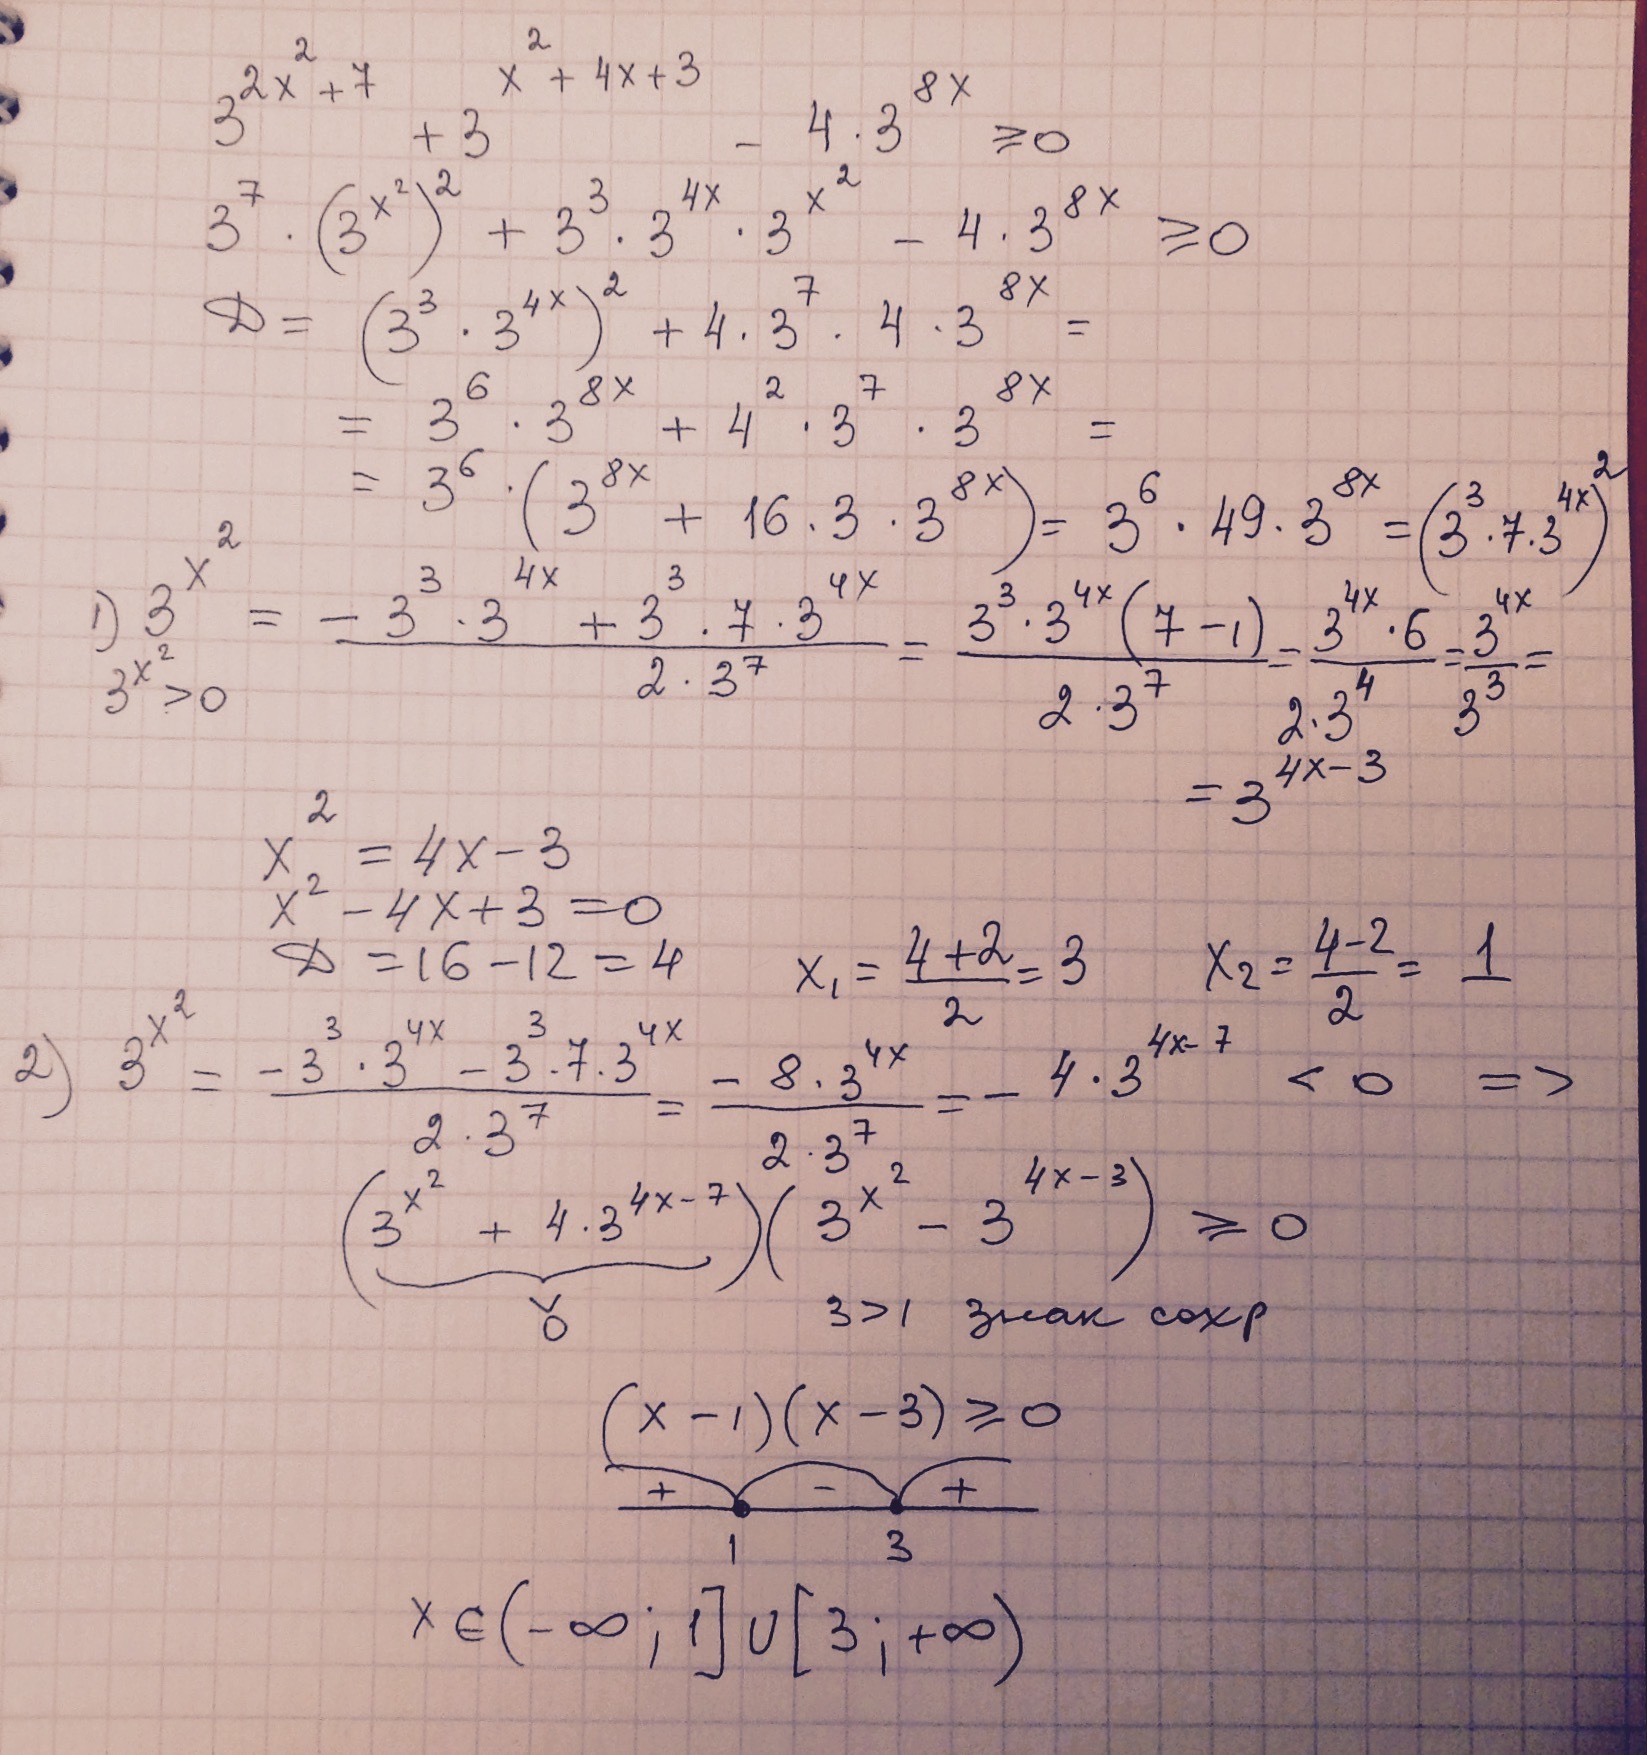 3^{2x^2+7} + 3^{x^2+4x+3} - 4·3^{8x} ≥0
3^7 · (3^{x^2})^2 + 3^3 · 3^{4x} · 3^{x^2} - 4·3^{8x} ≥0
D = (3^3 · 3^{4x})^2 + 4·3^7 · 4 · 3^{8x} =
= 3^6 · 3^{8x} + 4^2 · 3^7 · 3^{8x} =
= 3^6 · (3^{8x} + 16·3·3^{8x}) = 3^6 · 49 · 3^{8x} = (3^3 · 7·3^{4x})^2
1) 3^{x^2} = \frac{-3^3 · 3^{4x} + 3^3 · 7 · 3^{4x}}{2 · 3^7} = \frac{3^3 · 3^{4x}(7-1)}{2 · 3^7} = \frac{3^{4x} · 6}{2·3^4} = \frac{3^{4x}}{3^3} =
3^{x^2} > 0
= 3^{4x-3}
x^2 = 4x-3
x^2 - 4x+3 = 0
D = 16-12 = 4 x_1 = \frac{4+2}{2} = 3 x_2 = \frac{4-2}{2} = 1
2) 3^{x^2} = \frac{-3^3 · 3^{4x} - 3^3 · 7 · 3^{4x}}{2 · 3^7} = \frac{-8·3^{4x}}{2 · 3^7} = -4·3^{4x-7} < 0 =>
(3^{x^2} + 4·3^{4x-7})(3^{x^2} - 3^{4x-3}) ≥ 0
>0 3>1 знак сохр
(x-1)(x-3) ≥ 0
+ - +
1 3
x∈(-∞; 1]∪[3; +∞)